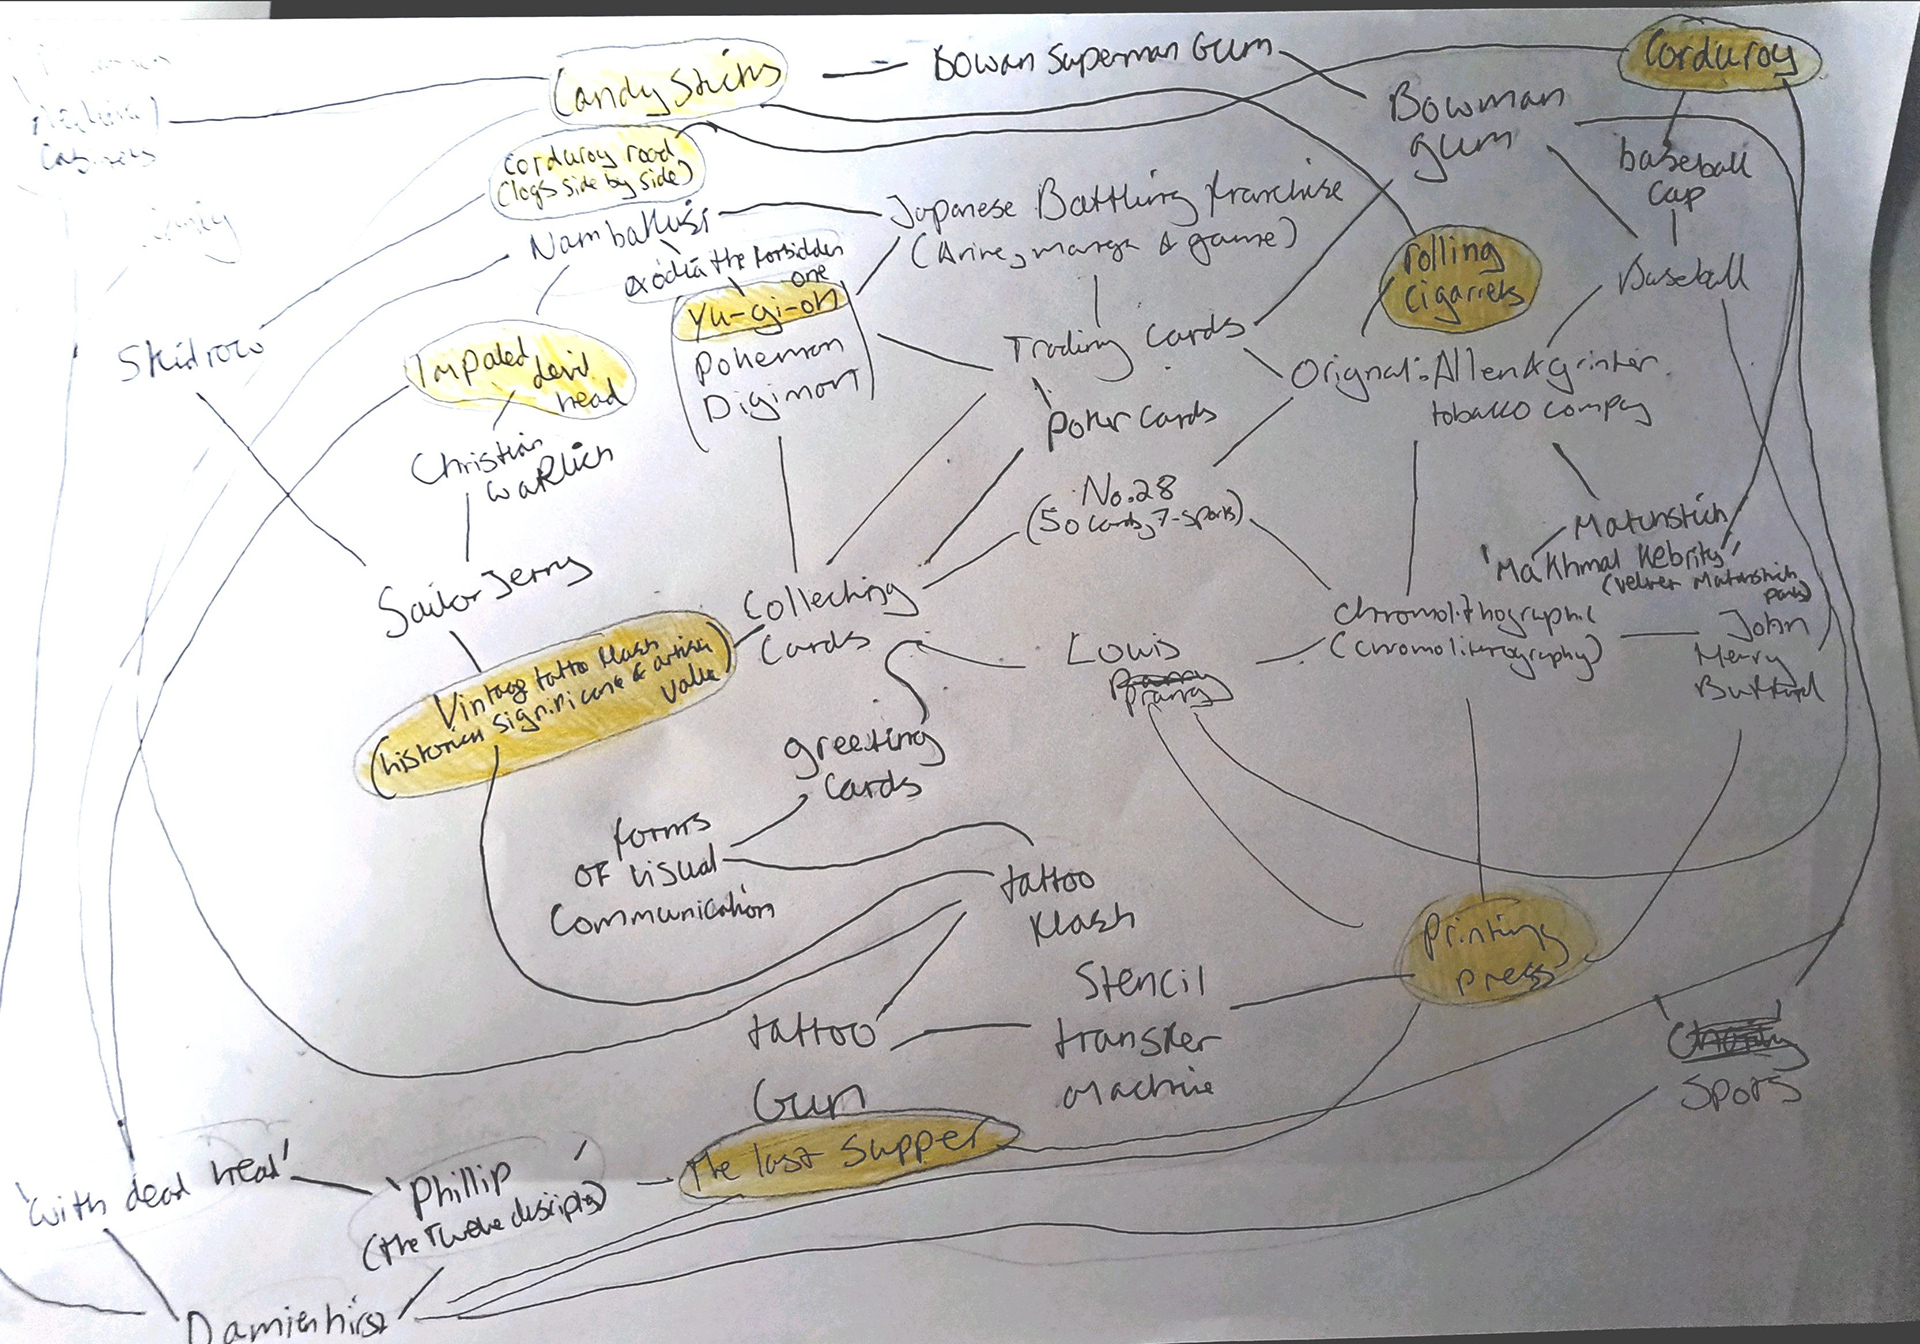 Candy Sticks
Bowan Superman Gum
Corduroy
Bowman
gum
Cabinets
corduroy road
(logs side by side)
baseball
cap
Japanese Battling franchise
(Anime, manga & game)
exodia the forbidden
one
rolling
cigarrets
Baseball
Yu-gi-oh
Pokemon
Digimon
Skidrow
Impaled
devil
head
Trading Cards
Orignal: Allen & grinter
tobacco compay
Poker Cards
Christian
waRlich
No. 28
(50 Cards, 7-Sports)
Matchstich
'Makhmal Kebrity'
(velvet Matchstich
Sailor Jerry
Collecting
Cards
chromolithographic
(chromoliterography)
John
Merry
Louis
prang
Vintage tatto flash
(historical significance & artistic
value
greeting
Cards
forms
OF visual
Communication
tattoo
flash
Printing
press
Stencil
transfer
machine
tattoo
Gun
Spots
The last Supper
'with dead head'
'Phillip'
(the Twelve disciples)
Damien hirst